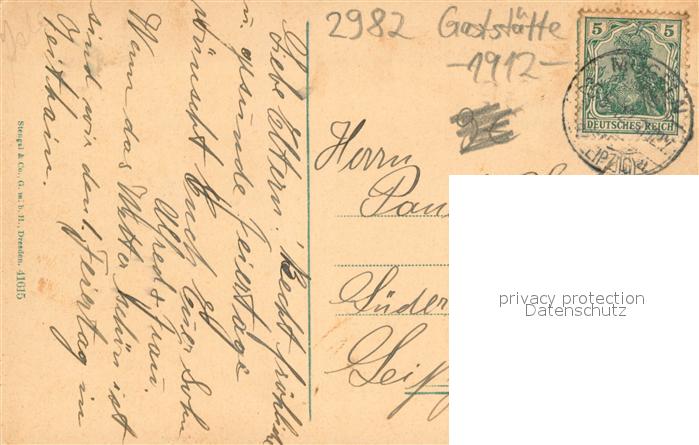 2982 Gaststätte
-1912-
2€
5 5
DEUTSCHES REICH
Liebe Eltern! Recht fröhliche
u. gesunde Feiertage
wünscht Euch Euer Sohn
Alfred & Frau.
Wenn das Wetter schön ist
sind wir den 1. Feiertag in
Zeithain.
Stengel & Co., G. m. b. H., Dresden. 41615
Herrn
Paul
Süder
Leipz
privacy protection
Datenschutz